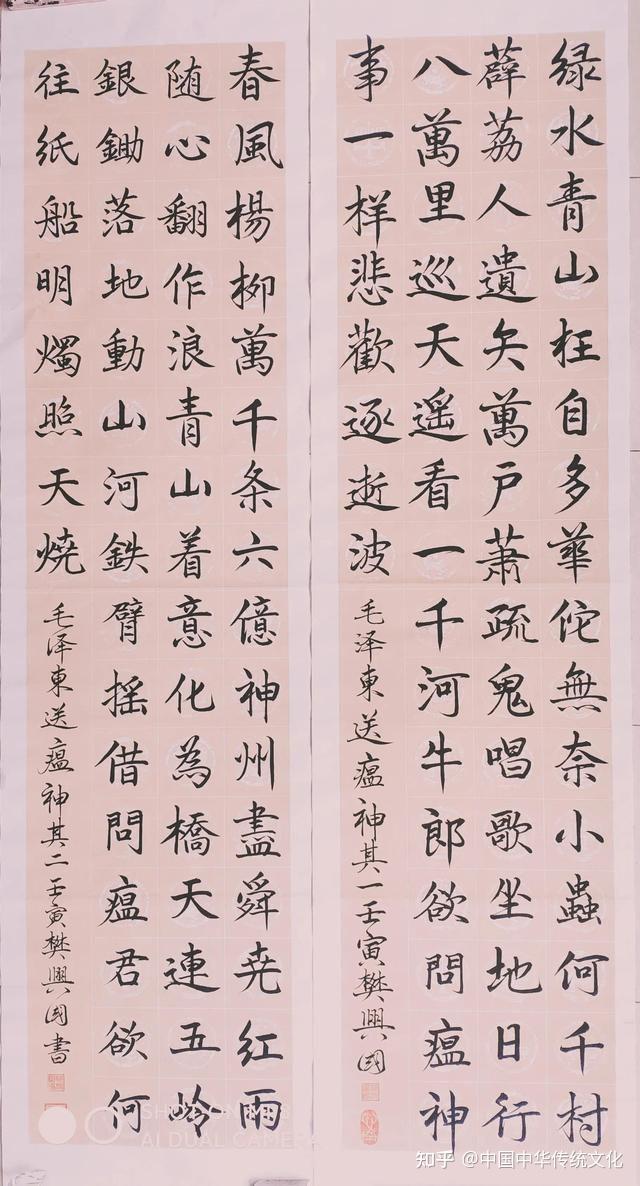 绿水青山枉自多華佗無奈小蟲何千村
薜荔人遺矢萬戶蕭疏鬼唱歌坐地日行
八萬里巡天遥看一千河牛郎欲問瘟神
事一样悲歡逐逝波
毛泽東送瘟神其一壬寅樊興國
春風楊柳萬千条六億神州盡舜尭紅雨
随心翻作浪青山着意化為橋天連五岭
銀鋤落地動山河鉄臂摇借問瘟君欲何
往紙船明燭照天燒
毛泽東送瘟神其二壬寅樊興国書
SHOT ON
AI DUAL CAMERA
知乎 @中国中华传统文化